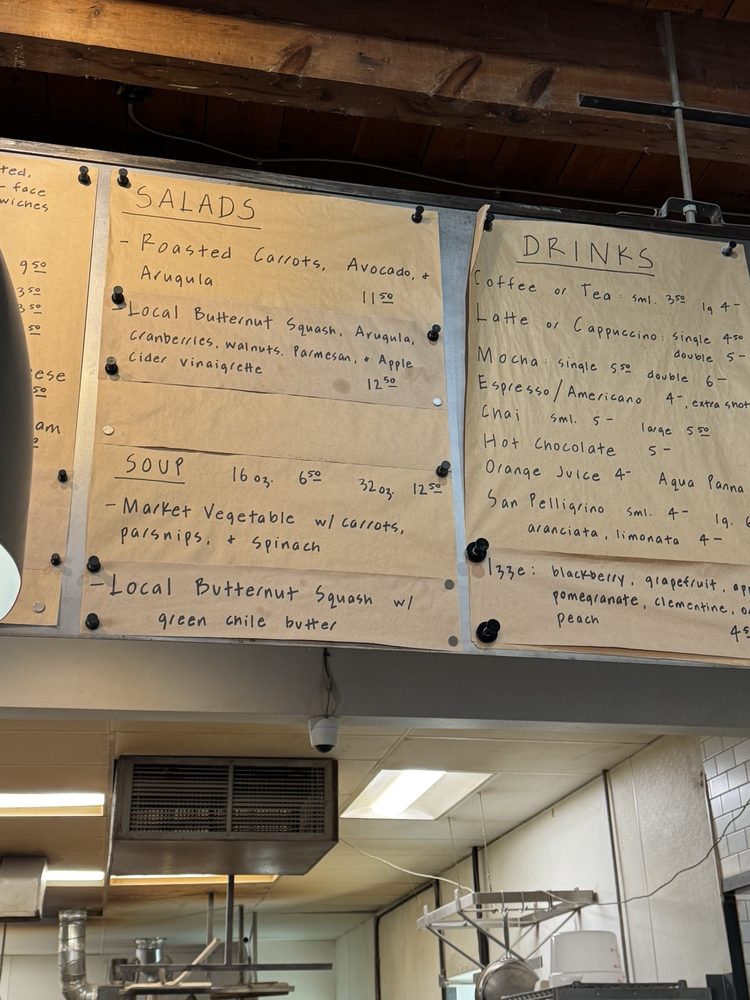 ted,
- face
wiches
9 50
3 50
3 50
50
ese
50
am
SALADS
- Roasted Carrots, Avocado, +
Arugula
11 50
- Local Butternut Squash, Arugula,
cranberries, walnuts, Parmesan, + Apple
Cider vinaigrette
12 50
SOUP 16 oz. 6 50 32 oz. 12 50
- Market Vegetable w/ carrots,
parsnips, + spinach
- Local Butternut Squash w/
green chile butter
DRINKS
Coffee or Tea: sml. 3 50 lg 4-
Latte or Cappuccino: single 4 50
double 5-
Mocha: single 5 50 double 6-
Espresso/Americano 4-, extra shot
Chai sml. 5- large 5 50
Hot Chocolate 5-
Orange Juice 4- Aqua Panna
San Pelligrino sml. 4- lg. 6
aranciata, limonata 4-
Izze: blackberry, grapefruit, app
pomegranate, clementine, o
peach
4 5